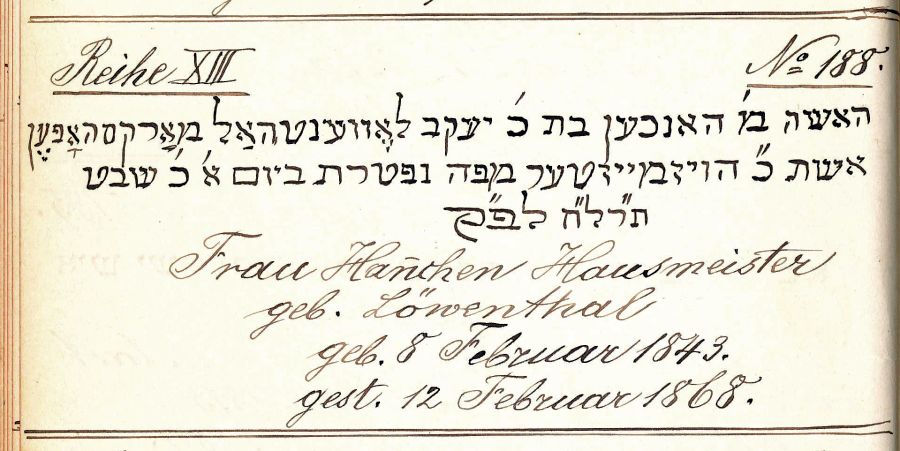 Reihe XIII № 188.
האשה מ׳ האנכען בת כ׳ יעקב לאֶװענטהאַל
אשת כ״ הויזמייזטער מפה נפטרת ביום א׳ כ׳ שבט
ת״רל״ח לפ״ק
Frau Han̄chen Hausmeister
geb. Löwenthal
geb. 8 Februar 1843.
gest. 12 Februar 1868.